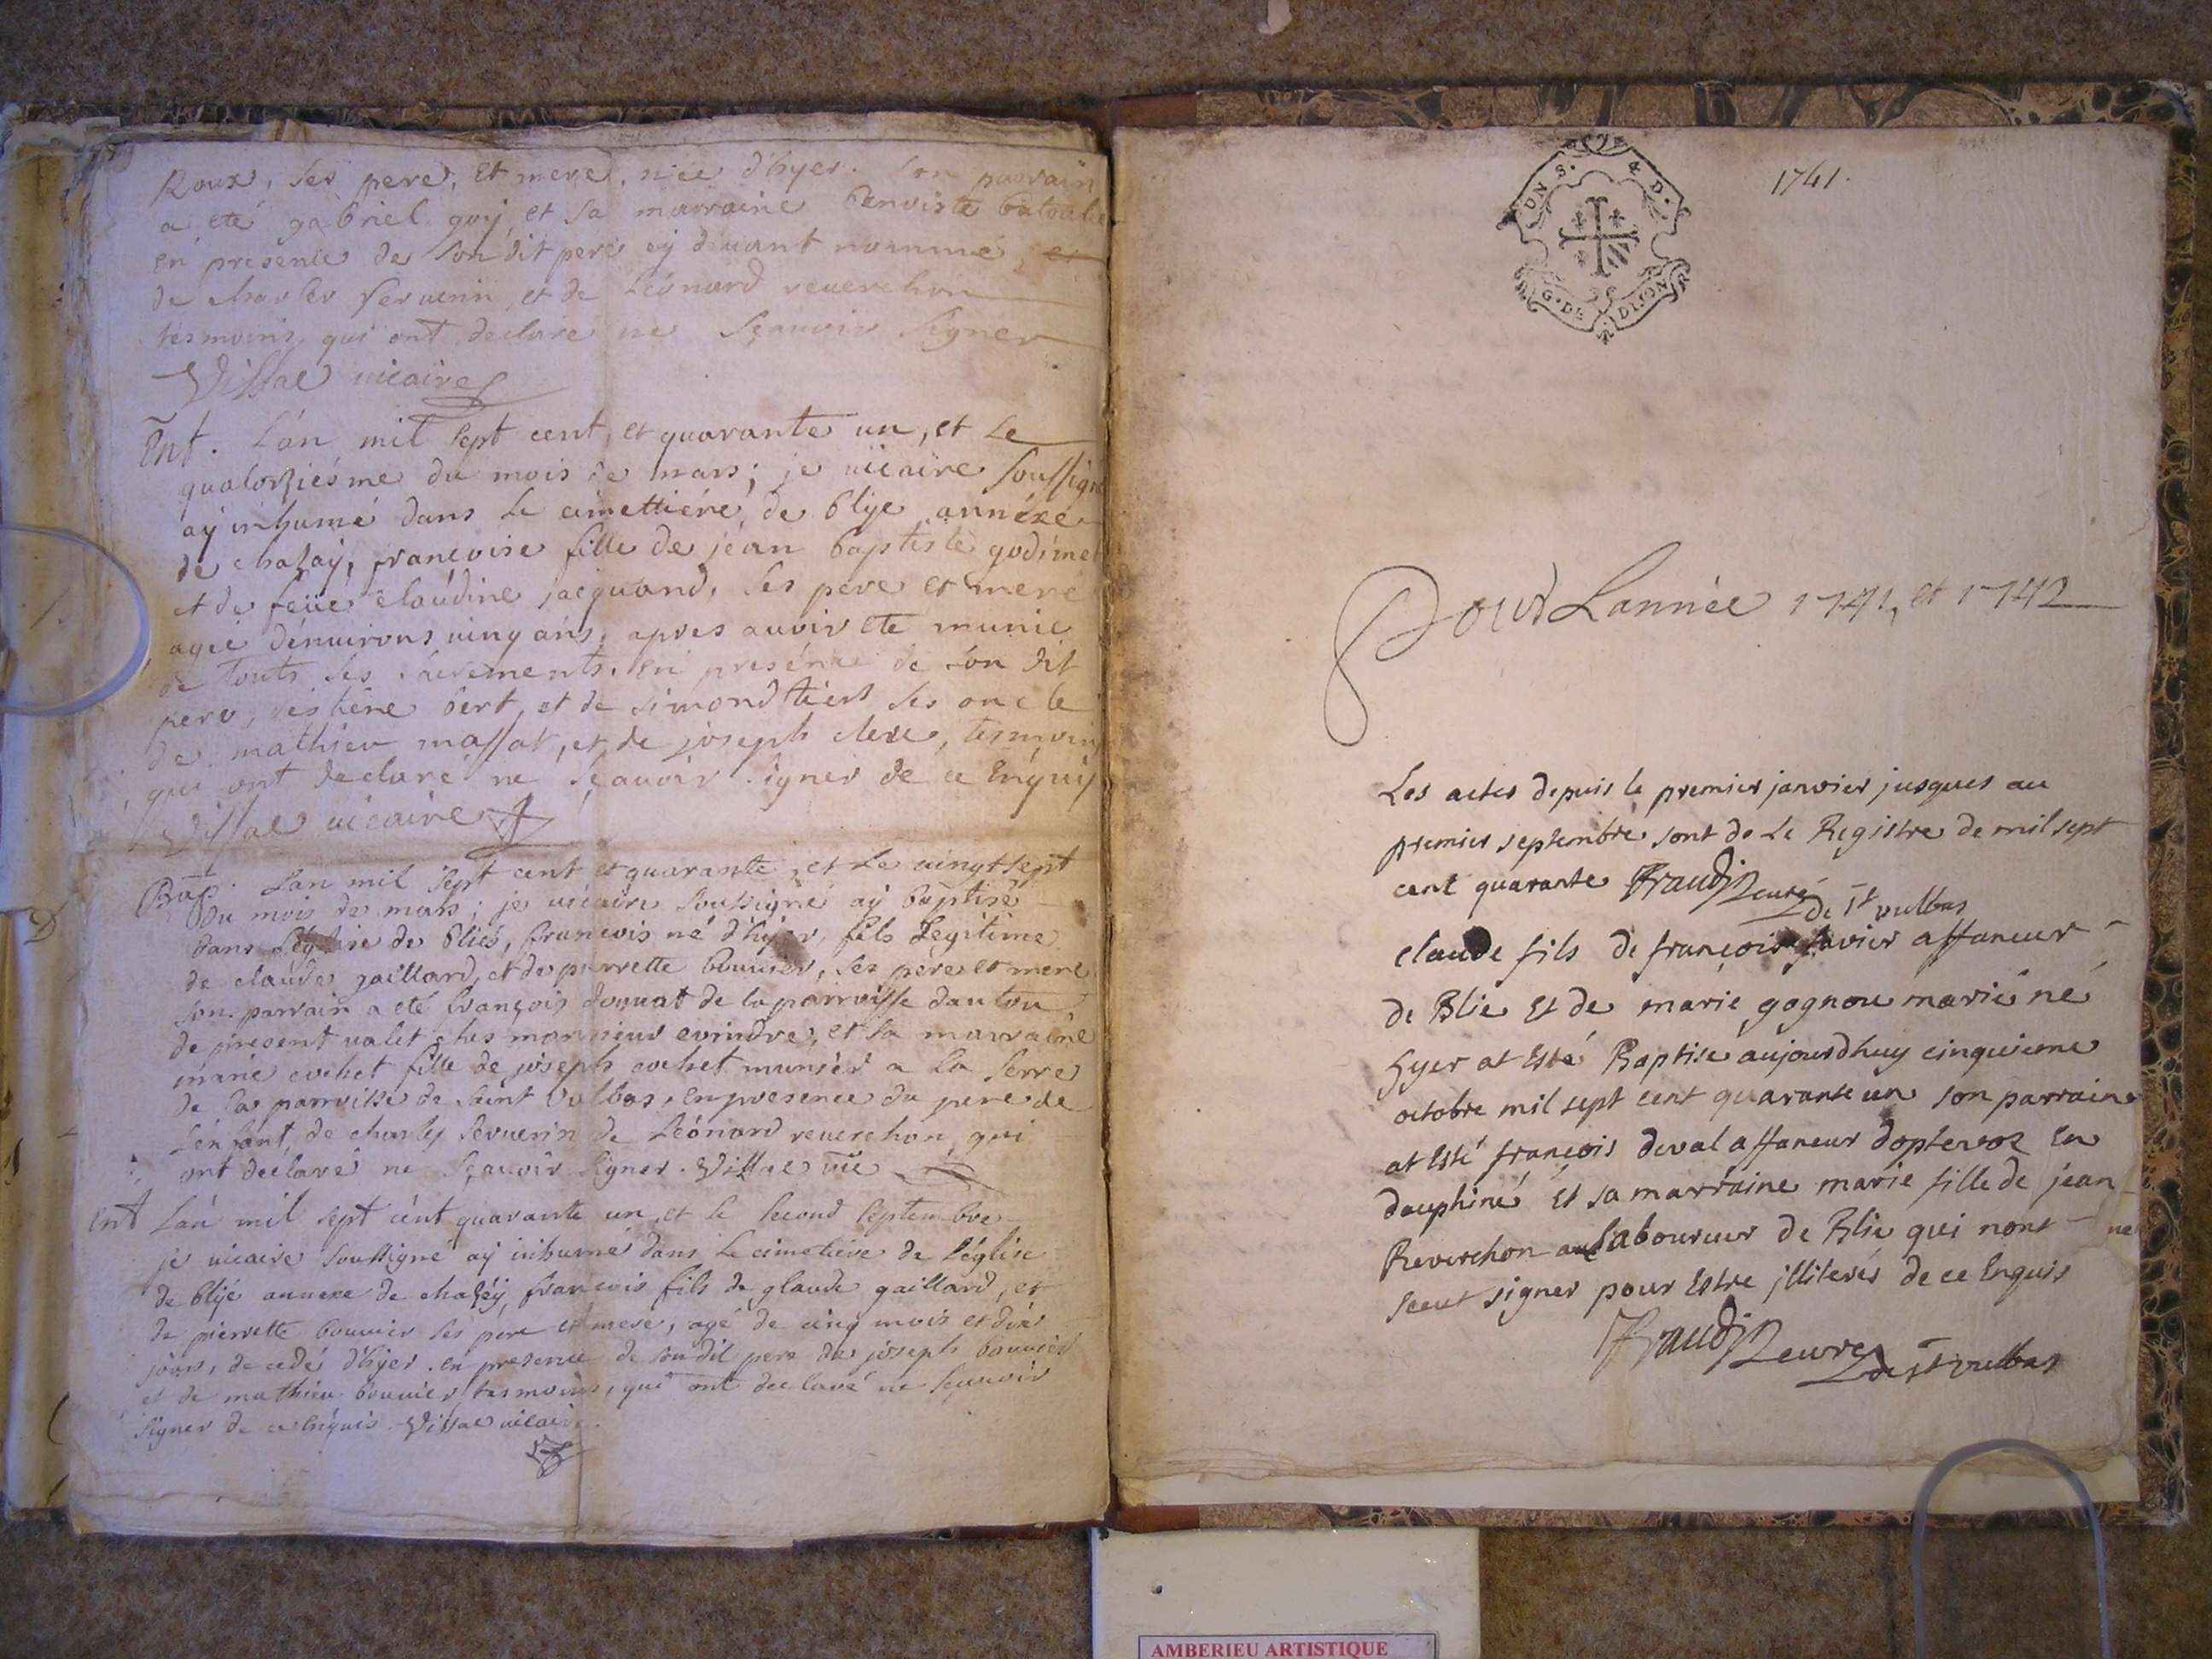 Roux, ses pere, et mere, née d'hyer. son parrain
a eté gabriel goy, et sa marraine benoiste
en presence de son dit pere cy devant nommé, et
de charles servenin, et de Léonard reverchon
tesmoins qui ont declaré ne sçauoir signer
Vissac uicaire
Ent. L'an mil sept cent, et quarante un, et le
quatorziesme du mois de mars; je uicaire soussigné
aÿ inhumé dans le cimettiére de blye annéxe
de chazaÿ, françoise fille de jean baptiste godimet
et de feüe claudine jacquand, ses pere et mere
agée d'énuirons uing ans, apres auoir eté munie
de touts ses sacrements. en presence de son dit
pere, bert, et de simond ses oncle
de mathieu massot, et de joseph clere, tesmoins
qui ont declaré ne sçauoir signer de ce énquis
Vissac uicaire
Bap. L'an mil sept cent et quarante, et le uingt sept
du mois de mars; je uicaire soussigné aÿ baptisé
dans L'eglise de bliés, francois né d'hyer, fils Légitime
de claude gaillard, et de pierrette bouuier, ses père et mere
son parrain a eté françois donnat de la parroisse dauton
de present ualet chés monsieur corindre, et sa marraine
marie cochet fille de joseph cochet munier a la serre
de la parroisse de saint Vulbas, en presence du pere de
L'enfant, de charles seruerin de Léonard reuerchon, qui
ont declaré ne sçauoir signer. Vissac uic
Ent L'an mil sept cent quarante un, et le second septembre
je uicaire soussigné aÿ inhumé dans le cimetiere de l'église
de blÿe annexe de chazéy, francois fils de glaude gaillard, et
de pierrette bouuier ses pere et mere, agé de cinq mois et dix
jours, decedé d'hÿer. en presence de son dit pere de joseph bouuier
et de mathieu bouuier tesmoins, qui ont declaré ne sçauoir
signer de ce énquis. Vissac uicaire
1741.
UN S. & D.
G. DE DIJON
Pour Lannée 1741, et 1742
Les actes depuis le premier janvier jusques au
premier septembre sont de Le Registre de mil sept
cent quarante Fraudi curé
de St vulbas
claude fils de françois favier affaneur
de Blie Et de marie gognou marié né
hyer at Esté Baptisé aujourdhuy cinquieme
octobre mil sept cent quarante un son parrain
at Esté françois deval affaneur doptevoz En
dauphiné Et sa marraine marie fille de jean
Reverchon laboureur de Blie qui nont ne
sceut signer pour Estre jlliterés de ce Enquis
Fraudi curé
de St vulbas
AMBERIEU ARTISTIQUE